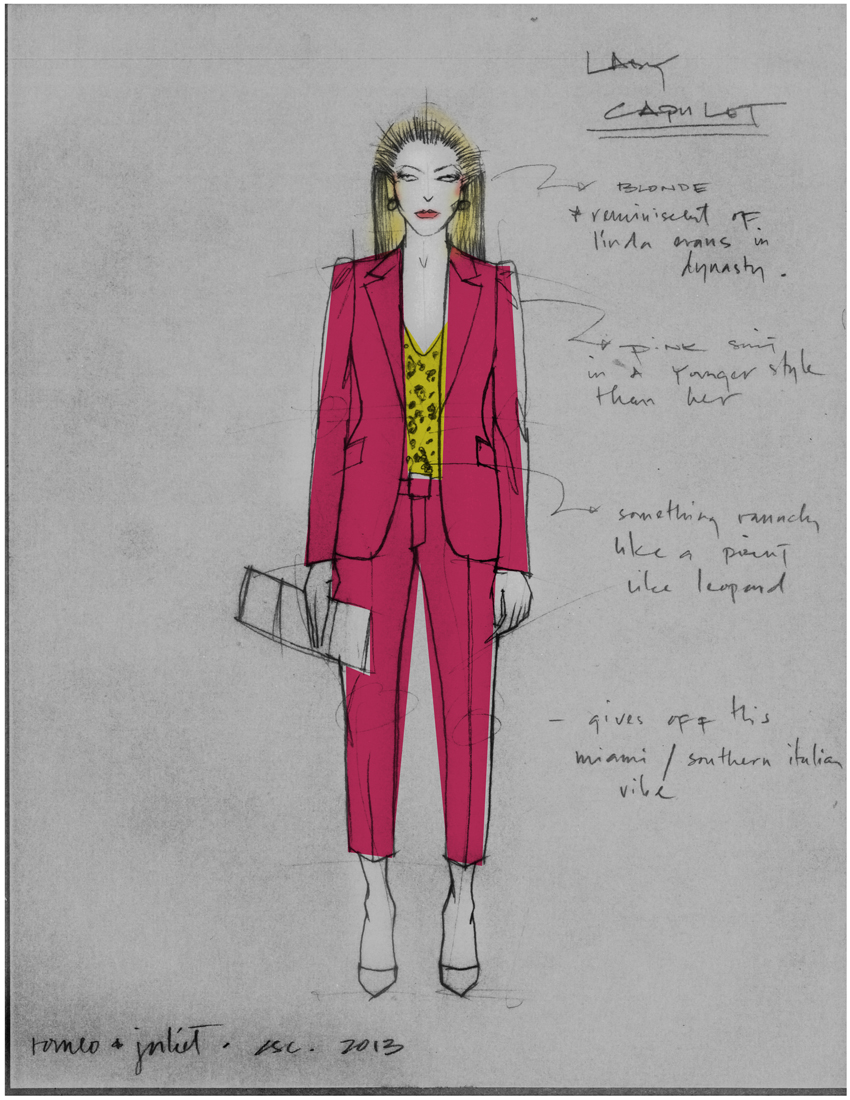 LADY
CAPULET
BLONDE
+ reminiscent of
linda evans in
dynasty.
PINK suit
in a younger style
than her
something raunchy
like a print
like leopard
- gives off this
miami / southern italian
vibe
romeo + juliet. csc. 2013